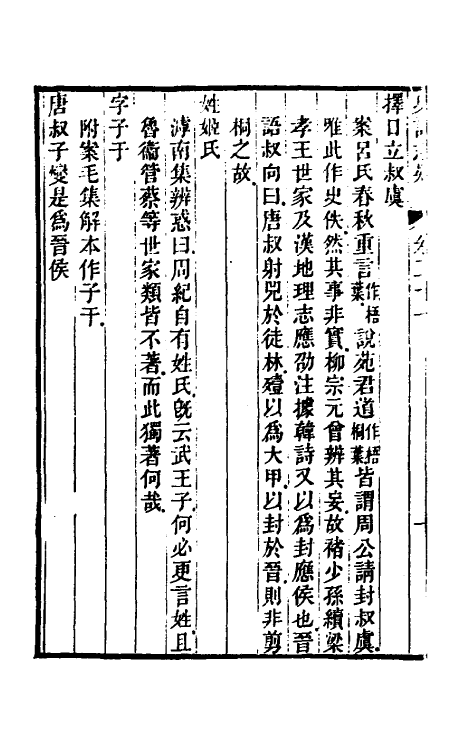 擇日立叔虞
案呂氏春秋重言作梧葉說苑君道作梧桐葉皆謂周公請封叔虞
雅此作史佚然其事非實柳宗元曾辨其妄故褚少孫續梁
孝王世家及漢地理志應劭注據韓詩又以爲封應侯也晉
語叔向曰唐叔射兕於徒林殪以爲大甲以封於晉則非剪
桐之故
姓姬氏
滹南集辨惑曰周紀自有姓氏既云武王子何必更言姓且
魯衞管蔡等世家類皆不著而此獨著何哉
字子于
附案毛集解本作子干
唐叔子燮是爲晉侯